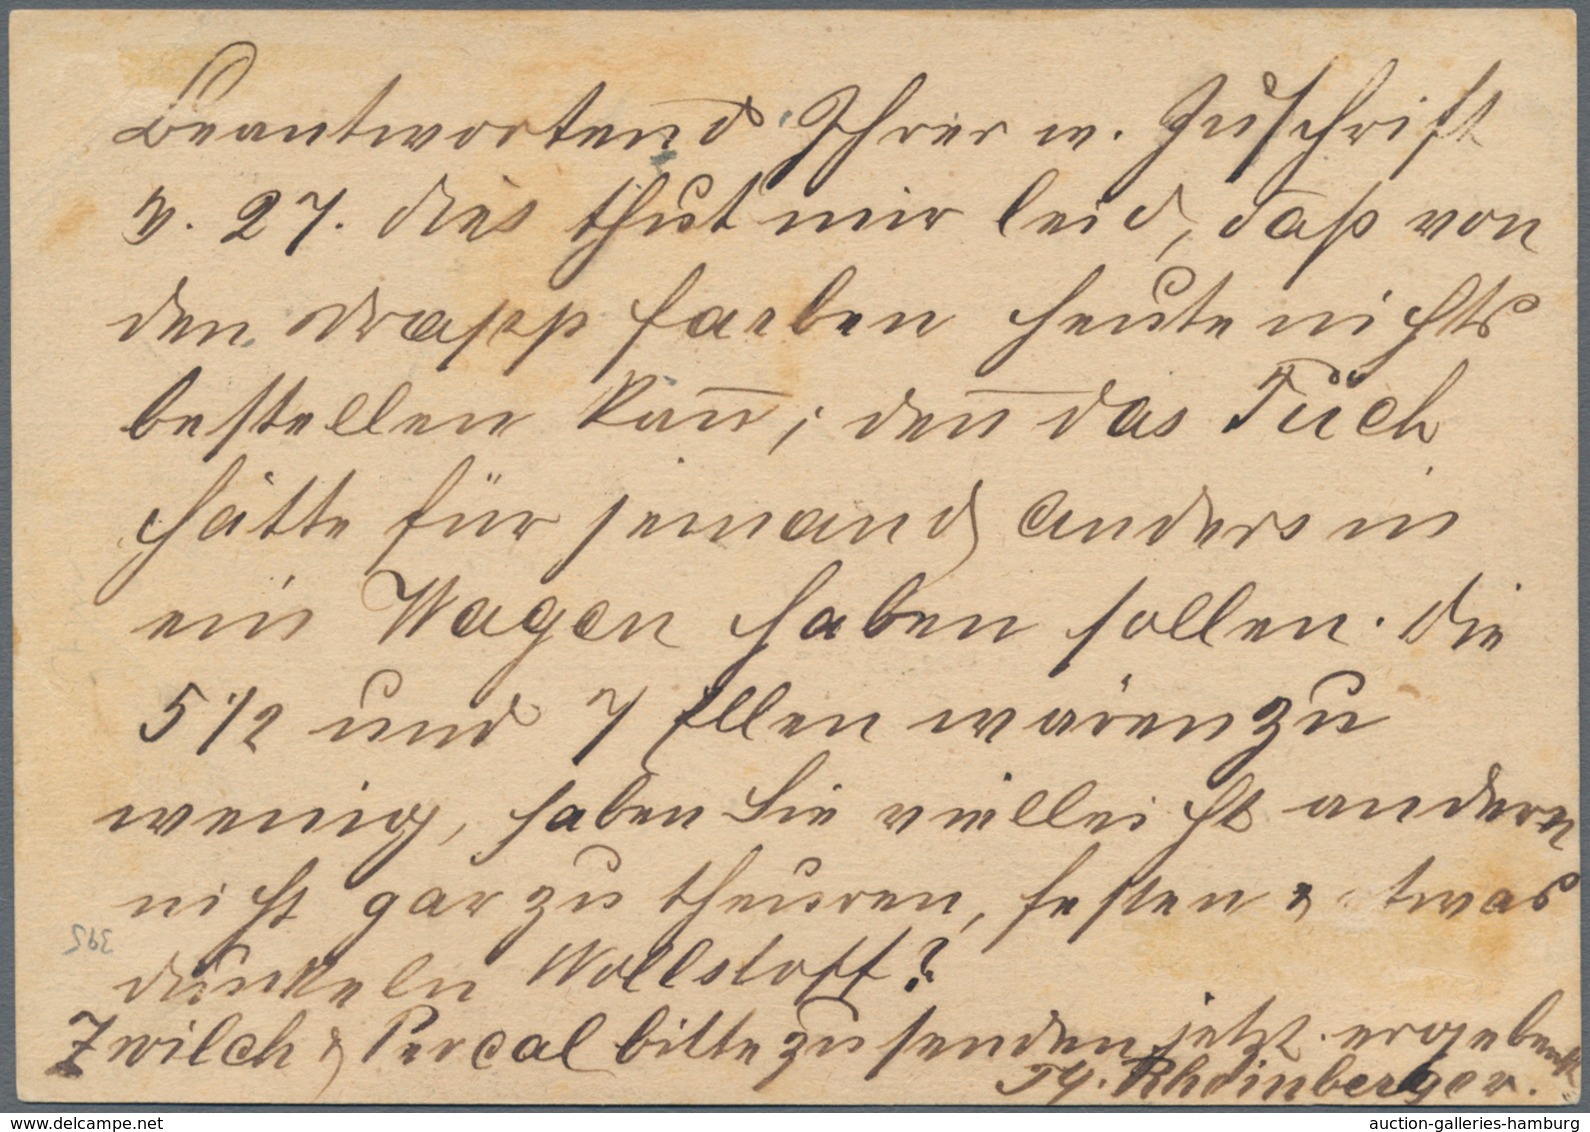 Beantwortend Ihrer w. Zuschrift
v. 27. dies thut mir leid, daß von
den drapp farben heute nichts
bestellen kan̄; den̄ das Tuch
hätte für jemand anders in
ein Wagen haben sollen. Die
5 1/2 und 7 Ellen wären zu
wenig, haben Sie vielleicht andern
nicht gar zu theuren, festen & etwas
dunkeln Wollstoff?
395
Zwilch & Percal bitte zu senden jetzt. ergebenst
Th. Rheinberger.
www.delcampe.net
auction-galleries-hamburg